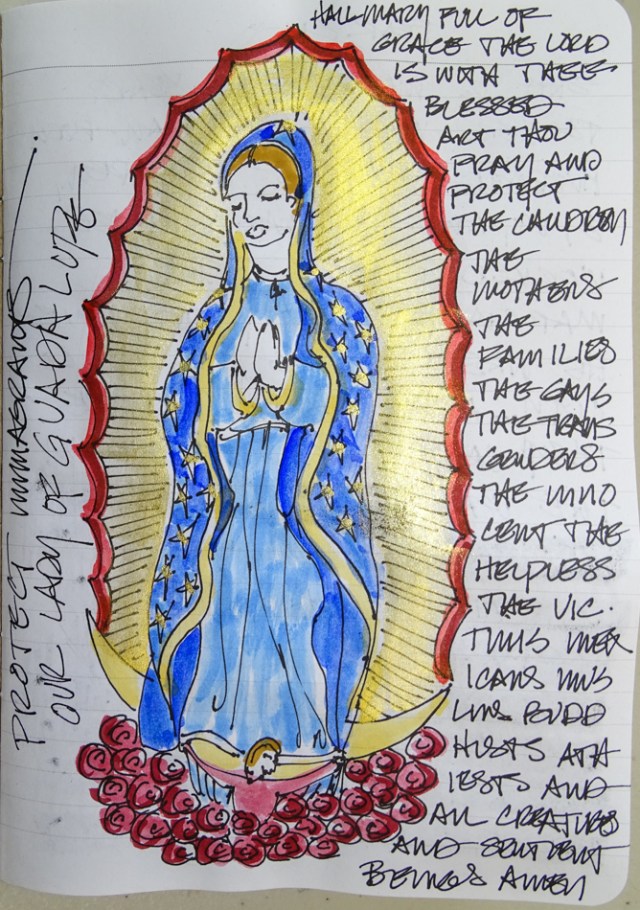 HAIL MARY FULL OF
GRACE THE LORD
IS WITH THEE
BLESSED
ART THOU
PRAY AND
PROTECT
THE CHILDREN
THE
MOTHERS
THE
FAMILIES
THE GAYS
THE TRANS
GENDERS
THE INNO
CENT THE
HELPLESS
THE VIC.
TIMS MEX
ICANS MUS
LIMS BUDD
HISTS ATH
IESTS AND
ALL CREATURES
AND SENTIENT
BEINGS AMEN
PROTECT IMMAGRANTS
OUR LADY OF GUADALUPE